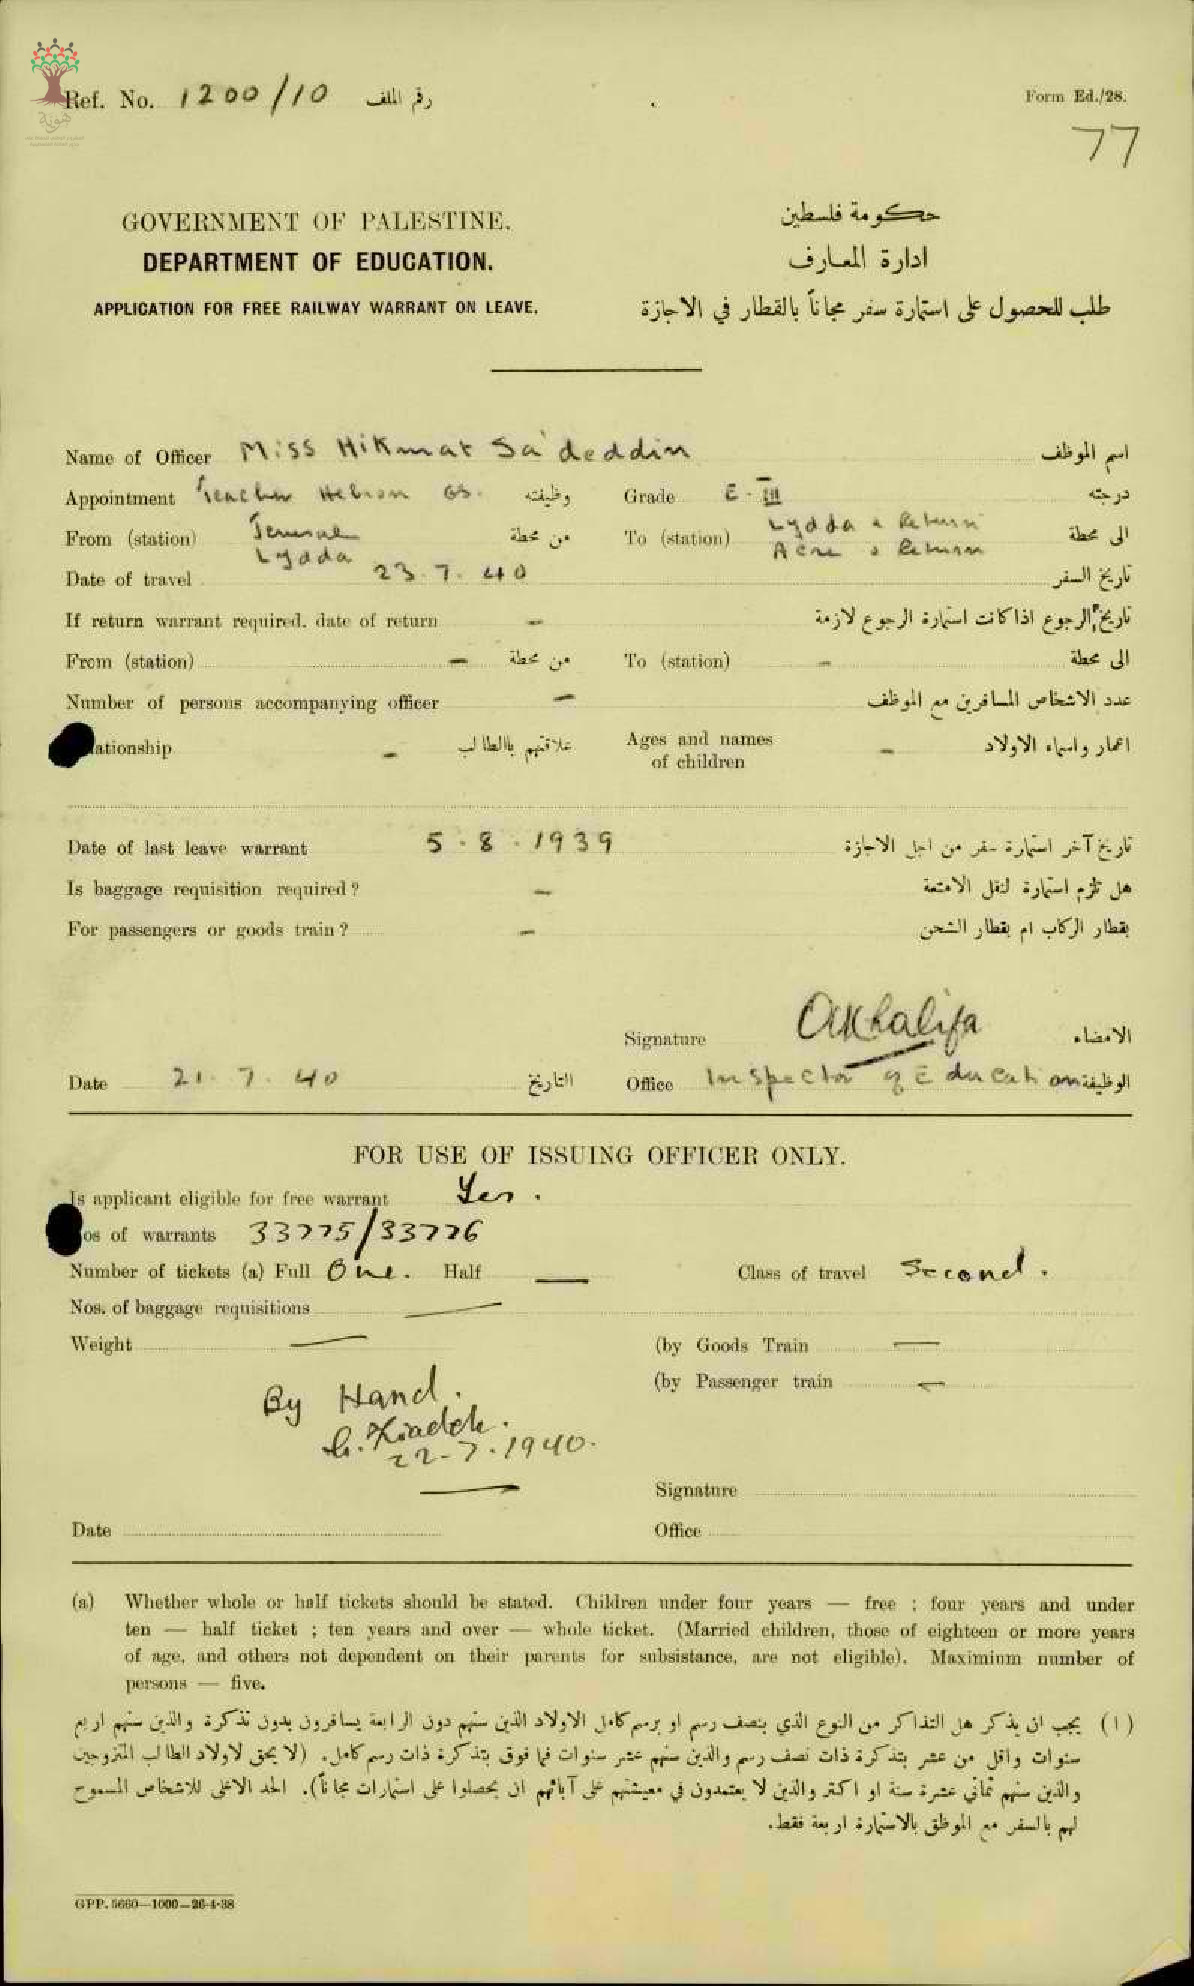 Ref. No. 1200/10 رقم الملف
Form Ed./28.
77
GOVERNMENT OF PALESTINE. حكومة فلسطين
DEPARTMENT OF EDUCATION. ادارة المعارف
APPLICATION FOR FREE RAILWAY WARRANT ON LEAVE. طلب للحصول على استمارة سفر مجاناً بالقطار في الاجازة
Name of Officer Miss Hikmat Sa'deddin اسم الموظف
Appointment Teacher Hebron GS. وظيفته Grade E.III درجته
From (station) Jerusalem من محطة To (station) Lydda & Return الى محطة
Lydda Acre & Return
Date of travel 23.7.40 تاريخ السفر
If return warrant required. date of return – تاريخ الرجوع اذا كانت استمارة الرجوع لازمة
From (station) – من محطة To (station) – الى محطة
Number of persons accompanying officer – عدد الاشخاص المسافرين مع الموظف
ationship – علاقتهم بالطالب Ages and names – اعمار واسماء الاولاد
of children
Date of last leave warrant 5.8.1939 تاريخ آخر استمارة سفر من اجل الاجازة
Is baggage requisition required? – هل تلزم استمارة لنقل الامتعة
For passengers or goods train? – بقطار الركاب ام بقطار الشحن
Signature OKhalifa الامضاء
Date 21.7.40 التاريخ Office Inspector of Education الوظيفة
FOR USE OF ISSUING OFFICER ONLY.
Is applicant eligible for free warrant Yes.
os of warrants 33775/33776
Number of tickets (a) Full One. Half — Class of travel Second.
Nos. of baggage requisitions —
Weight — (by Goods Train —
(by Passenger train –
By Hand.
22-7-1940.
Signature
Date Office
(a) Whether whole or half tickets should be stated. Children under four years — free ; four years and under
ten — half ticket ; ten years and over — whole ticket. (Married children, those of eighteen or more years
of age, and others not dependent on their parents for subsistance, are not eligible). Maximium number of
persons — five.
(١) يجب ان يذكر هل التذاكر من النوع الذي بنصف رسم او برسم كامل الاولاد الذين سنهم دون الرابعة يسافرون بدون تذكرة والذين سنهم اربع
سنوات واقل من عشر بتذكرة ذات نصف رسم والذين سنهم عشر سنوات فما فوق بتذكرة ذات رسم كامل. (لا يحق لاولاد الطالب المتزوجين
والذين سنهم ثماني عشرة سنة او اكثر والذين لا يعتمدون في معيشتهم على آبائهم ان يحصلوا على استمارات مجاناً). الحد الاعلى للاشخاص المسموح
لهم بالسفر مع الموظف بالاستمارة اربعة فقط.
GPP. 5660—1000—26-4-38